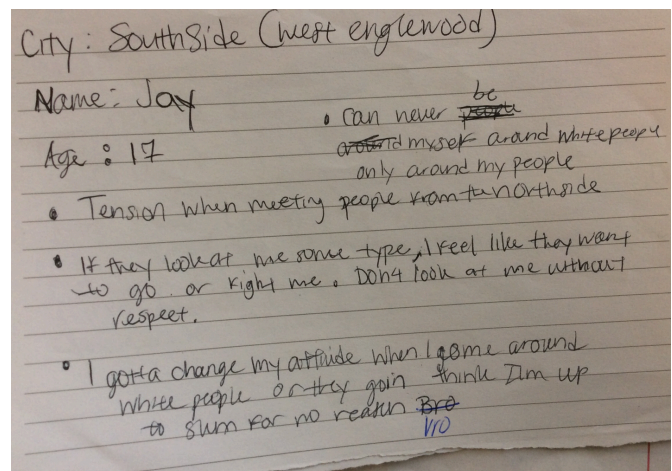 City: Southside (west englewood)
Name: Jay
Age: 17
• Can never be people
around myself around white people
only around my people
• Tension when meeting people from the northside
• If they look at me some type, I feel like they want
to go or fight me. Don't look at me without
respect.
• I gotta change my attitude when I come around
white people or they goin think I'm up
to sum for no reason Bro
vro